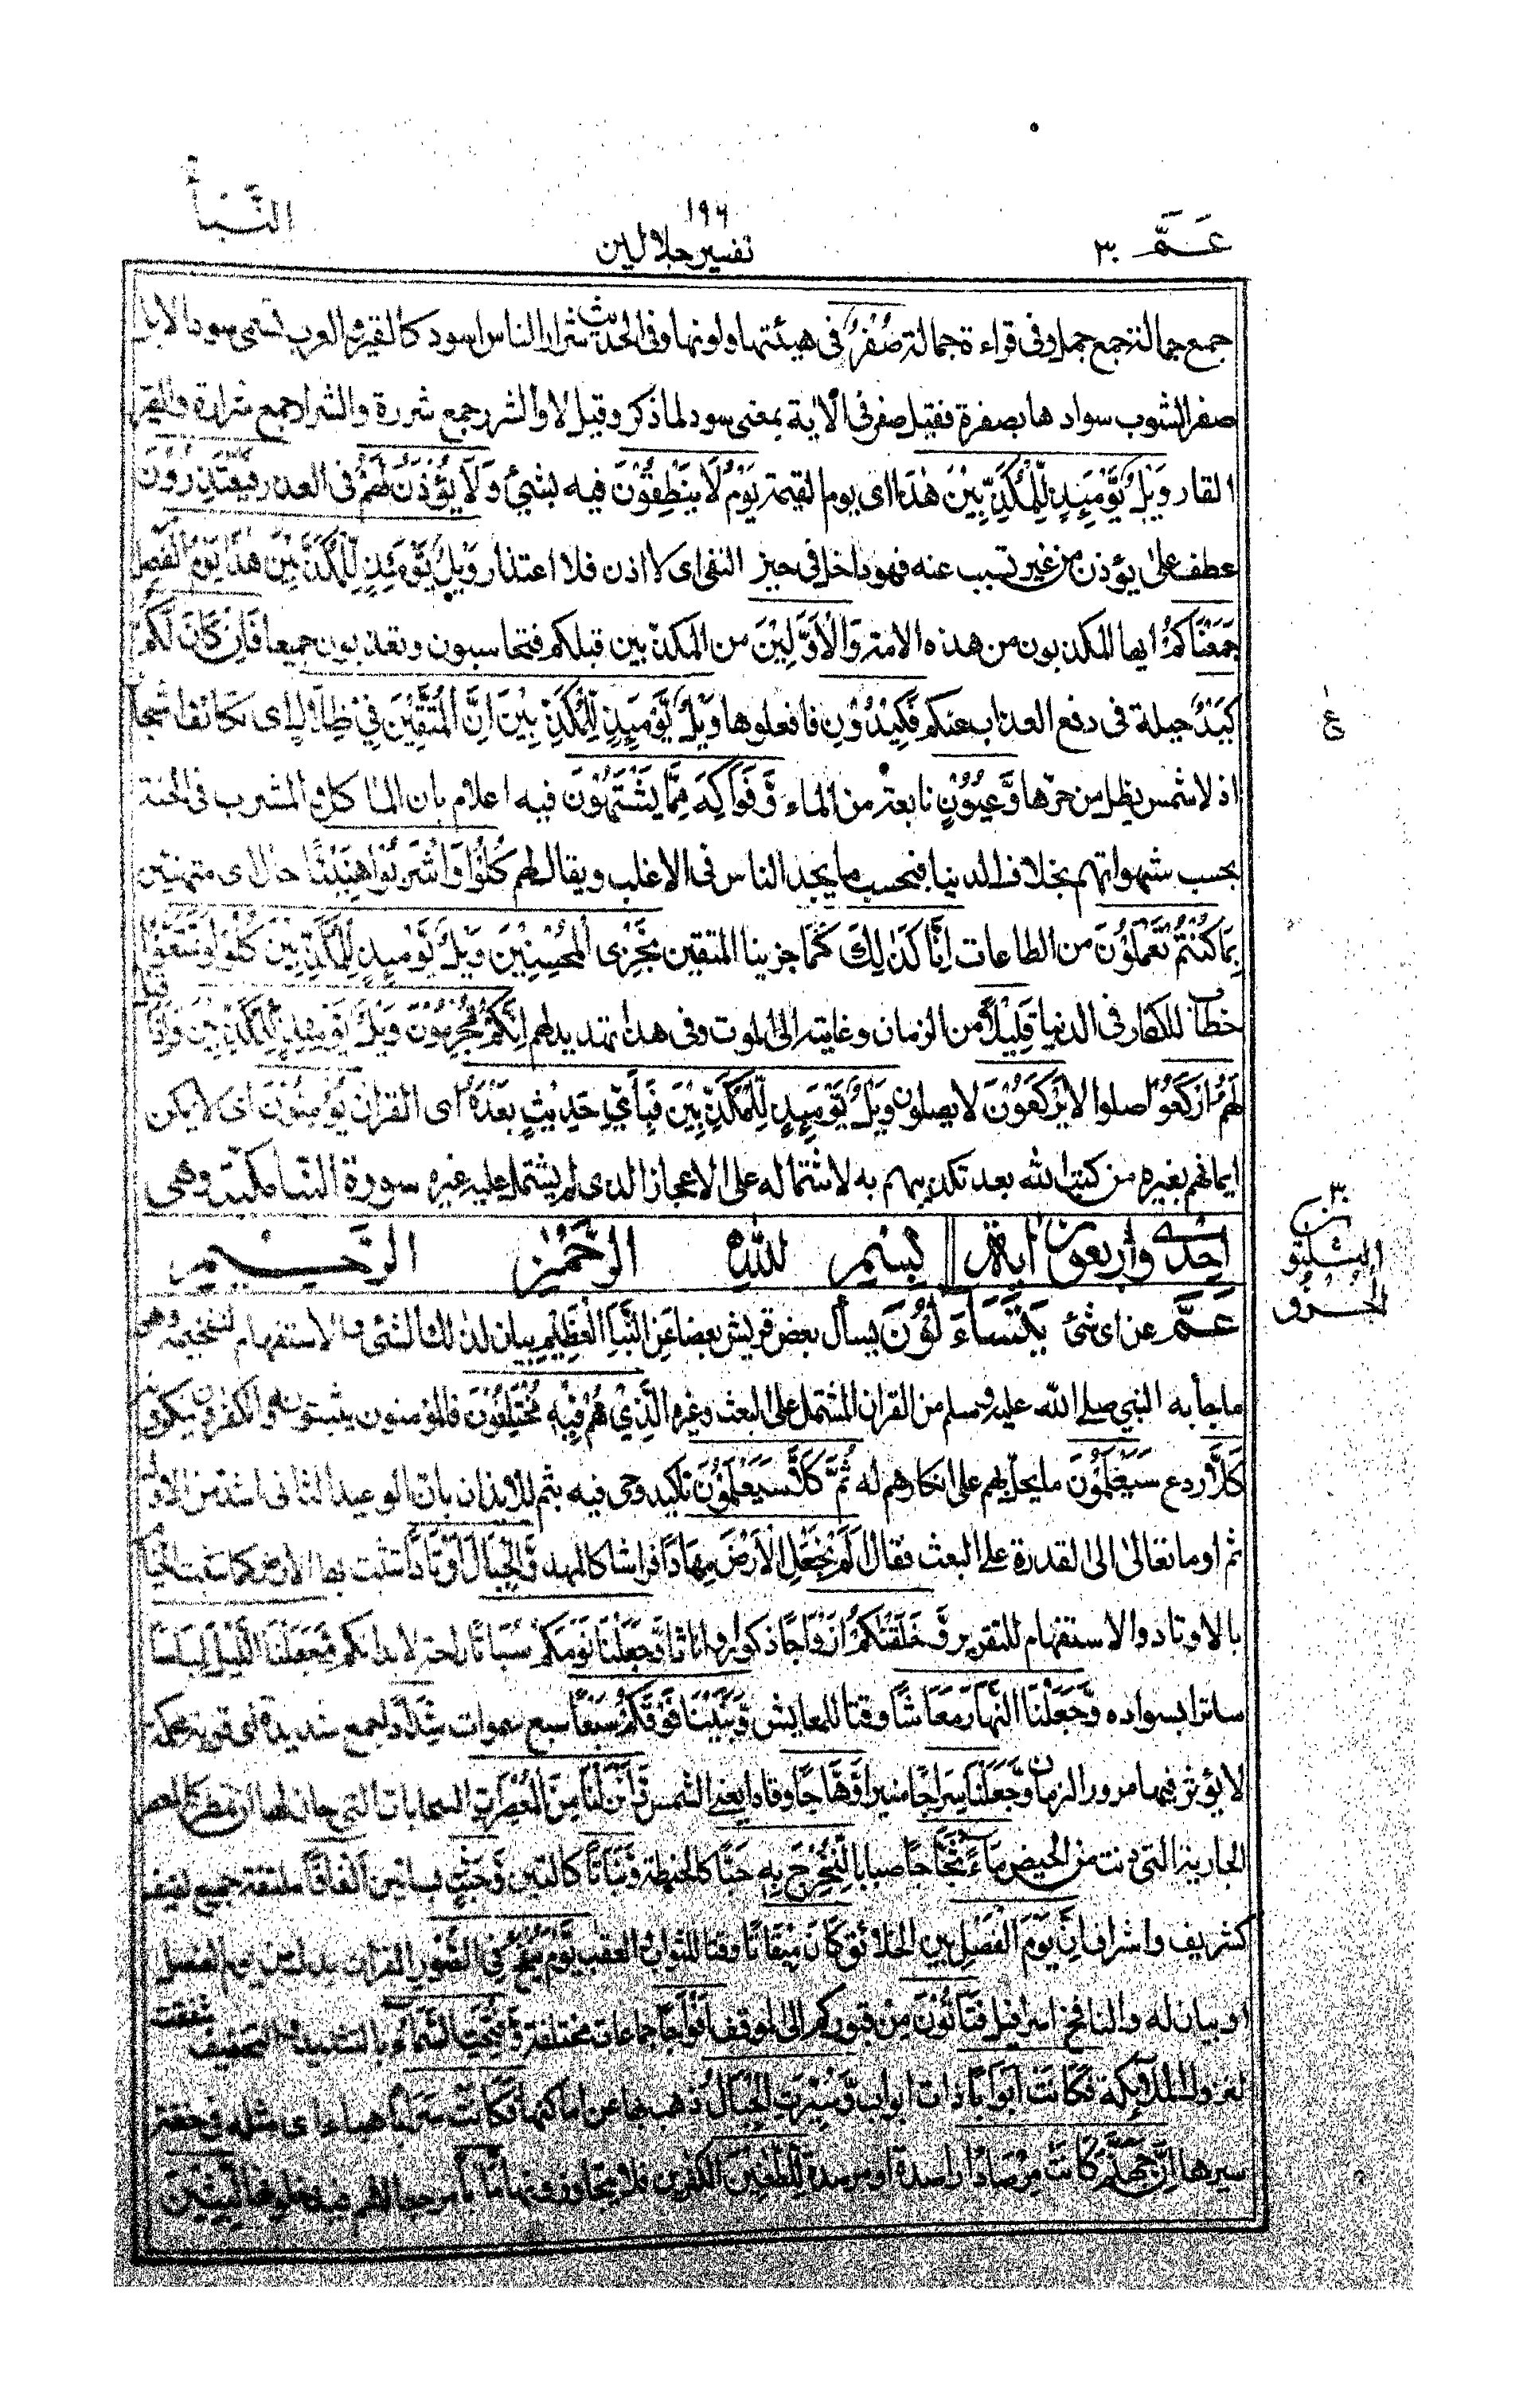 عَمَّ ٣٠
١٩٦
تفسير جلالين
النَّبَأ
جمع جمالة جمع جمل وفى قراءة جمالة صُفْرٌ فى هيئتها ولونها وفى الحديث شرار الناس اسود كالقير والعرب تسمى سود الابل
صفر الشوب سوادها بصفرة فقيل صفر فى الاية بمعنى سود لما ذكر وقيل لا والشرر جمع شررة والشرار جمع شرارة والقير
القار وَيْلٌ يَّوْمَئِذٍ لِّلْمُكَذِّبِيْنَ هٰذَا اى يوم القيمة يَوْمُ لَا يَنْطِقُوْنَ فيه بشيئ وَلَا يُؤْذَنُ لَهُمْ فى العذر فَيَعْتَذِرُوْنَ
عطف على يؤذن من غير تسبب عنه فهو داخل فى حيز النفى اى لا اذن فلا اعتذار وَيْلٌ يَّوْمَئِذٍ لِّلْمُكَذِّبِيْنَ هٰذَا يَوْمُ الْفَصْلِ
جَمَعْنٰكُمْ ايها المكذبون من هذه الامة وَالْاَوَّلِيْنَ من المكذبين قبلكم فتحاسبون وتعذبون جميعا فَاِنْ كَانَ لَكُمْ
كَيْدٌ حيلة فى دفع العذاب عنكم فَكِيْدُوْنِ فافعلوها وَيْلٌ يَّوْمَئِذٍ لِّلْمُكَذِّبِيْنَ اِنَّ الْمُتَّقِيْنَ فِيْ ظِلَالٍ اى تكاثف اشجار
اذ لا شمس يظل من حرها وَّعُيُوْنٍ نابعة من الماء وَّفَوَاكِهَ مِمَّا يَشْتَهُوْنَ فيه اعلام بان الماكل والمشرب فى الجنة
بحسب شهواتهم بخلاف الدنيا فبحسب ما يجد الناس فى الاغلب ويقال لهم كُلُوْا وَاشْرَبُوْا هَنِيْٓئًا حال اى متهنئين
بِمَا كُنْتُمْ تَعْمَلُوْنَ من الطاعات اِنَّا كَذٰلِكَ كما جزينا المتقين نَجْزِى الْمُحْسِنِيْنَ وَيْلٌ يَّوْمَئِذٍ لِّلْمُكَذِّبِيْنَ كُلُوْا وَتَمَتَّعُوْا
خطاب للكفار فى الدنيا قَلِيْلًا من الزمان وغايته الى الموت وفى هذا تهديد لهم اِنَّكُمْ مُّجْرِمُوْنَ وَيْلٌ يَّوْمَئِذٍ لِّلْمُكَذِّبِيْنَ وَاِذَا قِيْلَ
لَهُمُ ارْكَعُوْا صلوا لَا يَرْكَعُوْنَ لا يصلون وَيْلٌ يَّوْمَئِذٍ لِّلْمُكَذِّبِيْنَ فَبِاَيِّ حَدِيْثٍ بَعْدَهٗ اى القران يُؤْمِنُوْنَ اى لا يمكن
ايمانهم بغيره من كتب الله بعد تكذيبهم به لاشتماله على الاعجاز الذى لم يشتمل عليه غيره سورة النبا مكية وهى
احدى واربعون اية بسم الله الرحمن الرحيم
عَمَّ عن اى شئ يَتَسَآءَلُوْنَ يسأل بعض قريش بعضا عَنِ النَّبَاِ الْعَظِيْمِ بيان لذلك الشئ والاستفهام لتفخيمه وهو
ما جأ به النبى صلى الله عليه وسلم من القران المشتمل على البعث وغيره الَّذِيْ هُمْ فِيْهِ مُخْتَلِفُوْنَ فالمؤمنون يثبتونه والكفرون ينكرونه
كَلَّا ردع سَيَعْلَمُوْنَ ما يحل بهم على انكارهم له ثُمَّ كَلَّا سَيَعْلَمُوْنَ تاكيد وجئ فيه بثم للايذان بان الوعيد الثانى اشد من الاول
ثم اوما تعالى الى القدرة على البعث فقال اَلَمْ نَجْعَلِ الْاَرْضَ مِهَادًا فراشا كالمهد وَّالْجِبَالَ اَوْتَادًا تثبت بها الارض كما تثبت الخيام
بالاوتاد والاستفهام للتقرير وَّخَلَقْنٰكُمْ اَزْوَاجًا ذكورا واناثا وَّجَعَلْنَا نَوْمَكُمْ سُبَاتًا راحة لابدانكم وَّجَعَلْنَا الَّيْلَ لِبَاسًا
ساترا بسواده وَّجَعَلْنَا النَّهَارَ مَعَاشًا وقتا للمعايش وَّبَنَيْنَا فَوْقَكُمْ سَبْعًا سبع سموات شِدَادًا جمع شديدة اى قوية محكمة
لا يؤثر فيها مرور الزمان وَّجَعَلْنَا سِرَاجًا منيرا وَّهَّاجًا وقادا يعنى الشمس وَّاَنْزَلْنَا مِنَ الْمُعْصِرٰتِ السحابات التى حان لها ان تمطر كالمعصر
الجارية التى دنت من الحيض مَآءً ثَجَّاجًا صبابا لِّنُخْرِجَ بِهٖ حَبًّا كالحنطة وَّنَبَاتًا كالتين وَّجَنّٰتٍ بساتين اَلْفَافًا ملتفة جمع لفيف
كشريف واشراف اِنَّ يَوْمَ الْفَصْلِ بين الخلائق كَانَ مِيْقَاتًا وقتا للثواب والعقاب يَّوْمَ يُنْفَخُ فِى الصُّوْرِ القران بدل من يوم الفصل
او بيان له والنافخ اسرافيل فَتَاْتُوْنَ من قبوركم الى الموقف اَفْوَاجًا جماعات مختلفة وَّفُتِحَتِ السَّمَآءُ بالتشديد والتخفيف شققت
لنزول الملائكة فَكَانَتْ اَبْوَابًا ذات ابواب وَّسُيِّرَتِ الْجِبَالُ ذهب بها عن اماكنها فَكَانَتْ سَرَابًا هباء اى مثله فى خفة
سيرها اِنَّ جَهَنَّمَ كَانَتْ مِرْصَادًا راصدة او مرصدة لِّلطّٰغِيْنَ الكفرين فلا يتجاوزونها مَاٰبًا مرجعا لهم فيدخلونها لّٰبِثِيْنَ
ع
٣٠
الجزؤ